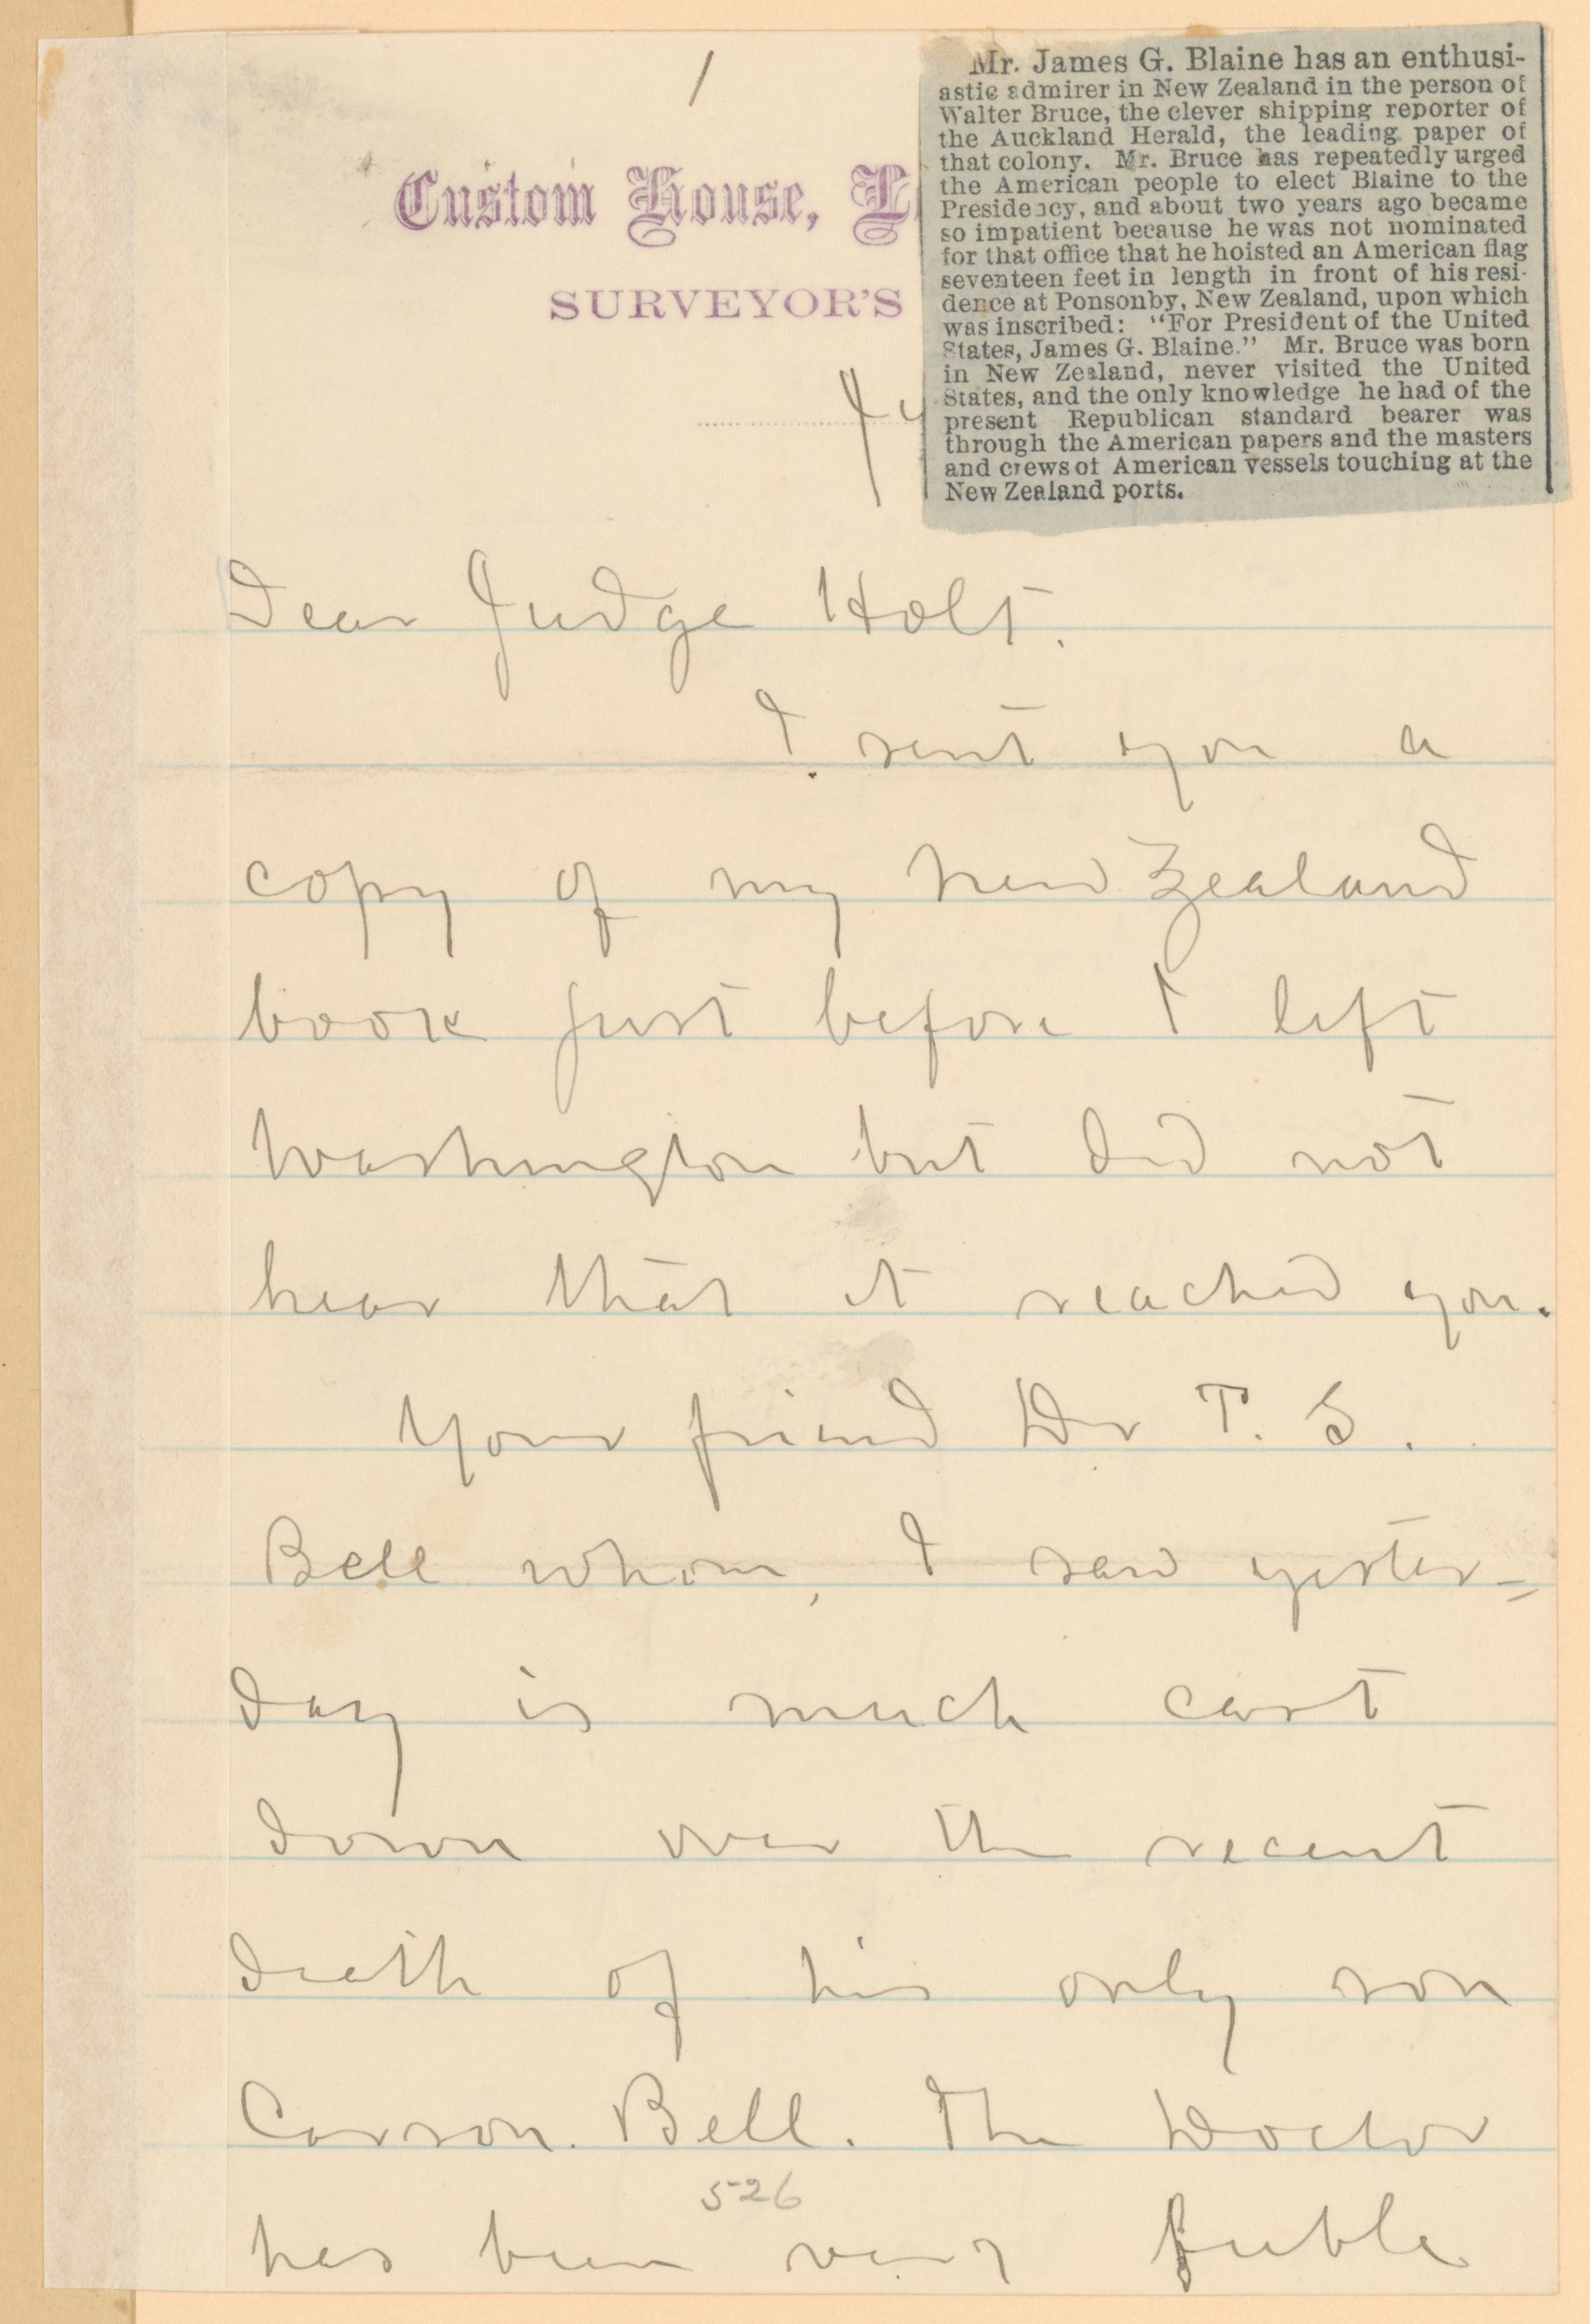 1
Mr. James G. Blaine has an enthusi-
astic admirer in New Zealand in the person of
Walter Bruce, the clever shipping reporter of
the Auckland Herald, the leading paper of
that colony. Mr. Bruce has repeatedly urged
the American people to elect Blaine to the
Presidency, and about two years ago became
so impatient because he was not nominated
for that office that he hoisted an American flag
seventeen feet in length in front of his resi-
dence at Ponsonby, New Zealand, upon which
was inscribed: "For President of the United
States, James G. Blaine." Mr. Bruce was born
in New Zealand, never visited the United
States, and the only knowledge he had of the
present Republican standard bearer was
through the American papers and the masters
and crews of American vessels touching at the
New Zealand ports.
Custom House, L
SURVEYOR'S
Dear Judge Holt.
I sent you a
copy of my New Zealand
book just before I left
Washington but did not
hear that it reached you.
Your friend Dr T. S.
Bell whom, I saw yester=
day is much cast
down over the recent
death of his only son
Carson Bell. The Doctor
has been very feeble
526